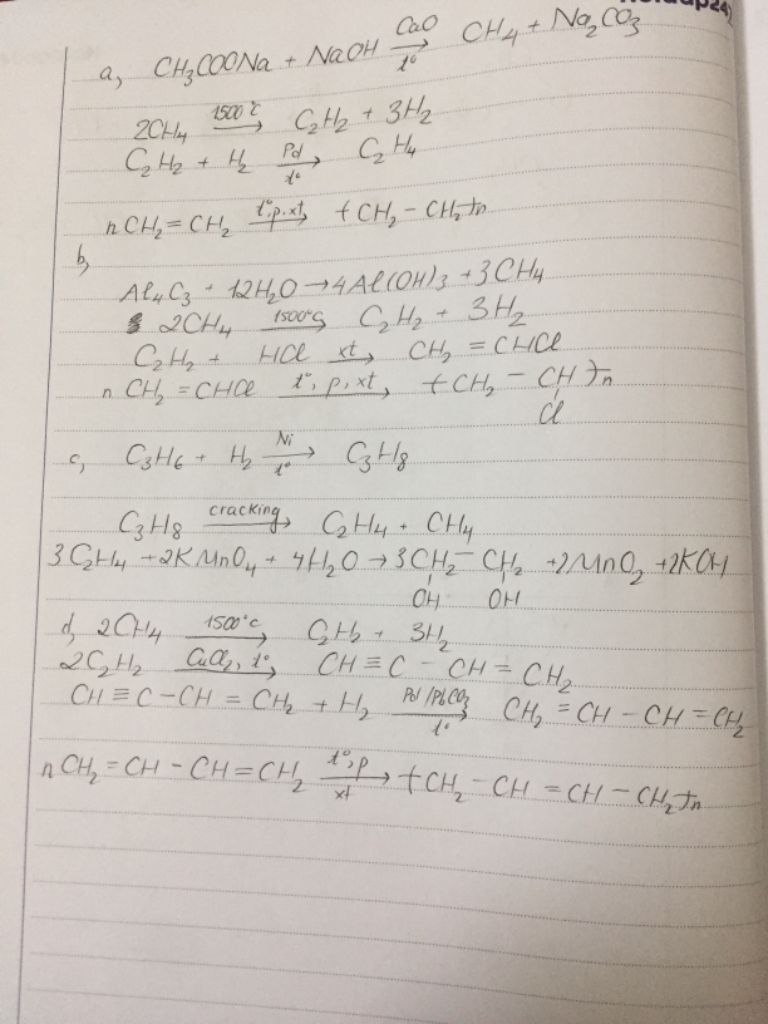 a, CH₃COONa + NaOH \xrightarrow[t°]{CaO} CH₄ + Na₂CO₃
2CH₄ \xrightarrow{1500°C} C₂H₂ + 3H₂
C₂H₂ + H₂ \xrightarrow[t°]{Pd} C₂H₄
nCH₂=CH₂ \xrightarrow{t°,p,xt} (CH₂-CH₂)n
b,
Al₄C₃ + 12H₂O → 4Al(OH)₃ + 3CH₄
2CH₄ \xrightarrow{1500°C} C₂H₂ + 3H₂
C₂H₂ + HCl \xrightarrow{xt} CH₂ = CHCl
n CH₂ = CHCl \xrightarrow{t°, p, xt} (CH₂ - CH)n
Cl
c, C₃H₆ + H₂ \xrightarrow[t°]{Ni} C₃H₈
C₃H₈ \xrightarrow{cracking} C₂H₄ + CH₄
3C₂H₄ + 2KMnO₄ + 4H₂O → 3CH₂ - CH₂ + 2MnO₂ + 2KOH
OH OH
d, 2CH₄ \xrightarrow{1500°C} C₂H₂ + 3H₂
2C₂H₂ \xrightarrow{CuCl₂, t°} CH ≡ C - CH = CH₂
CH ≡ C - CH = CH₂ + H₂ \xrightarrow[t°]{Pd/PbCO₃} CH₂ = CH - CH = CH₂
nCH₂ = CH - CH = CH₂ \xrightarrow[xt]{t°,p} (CH₂ - CH = CH - CH₂)n